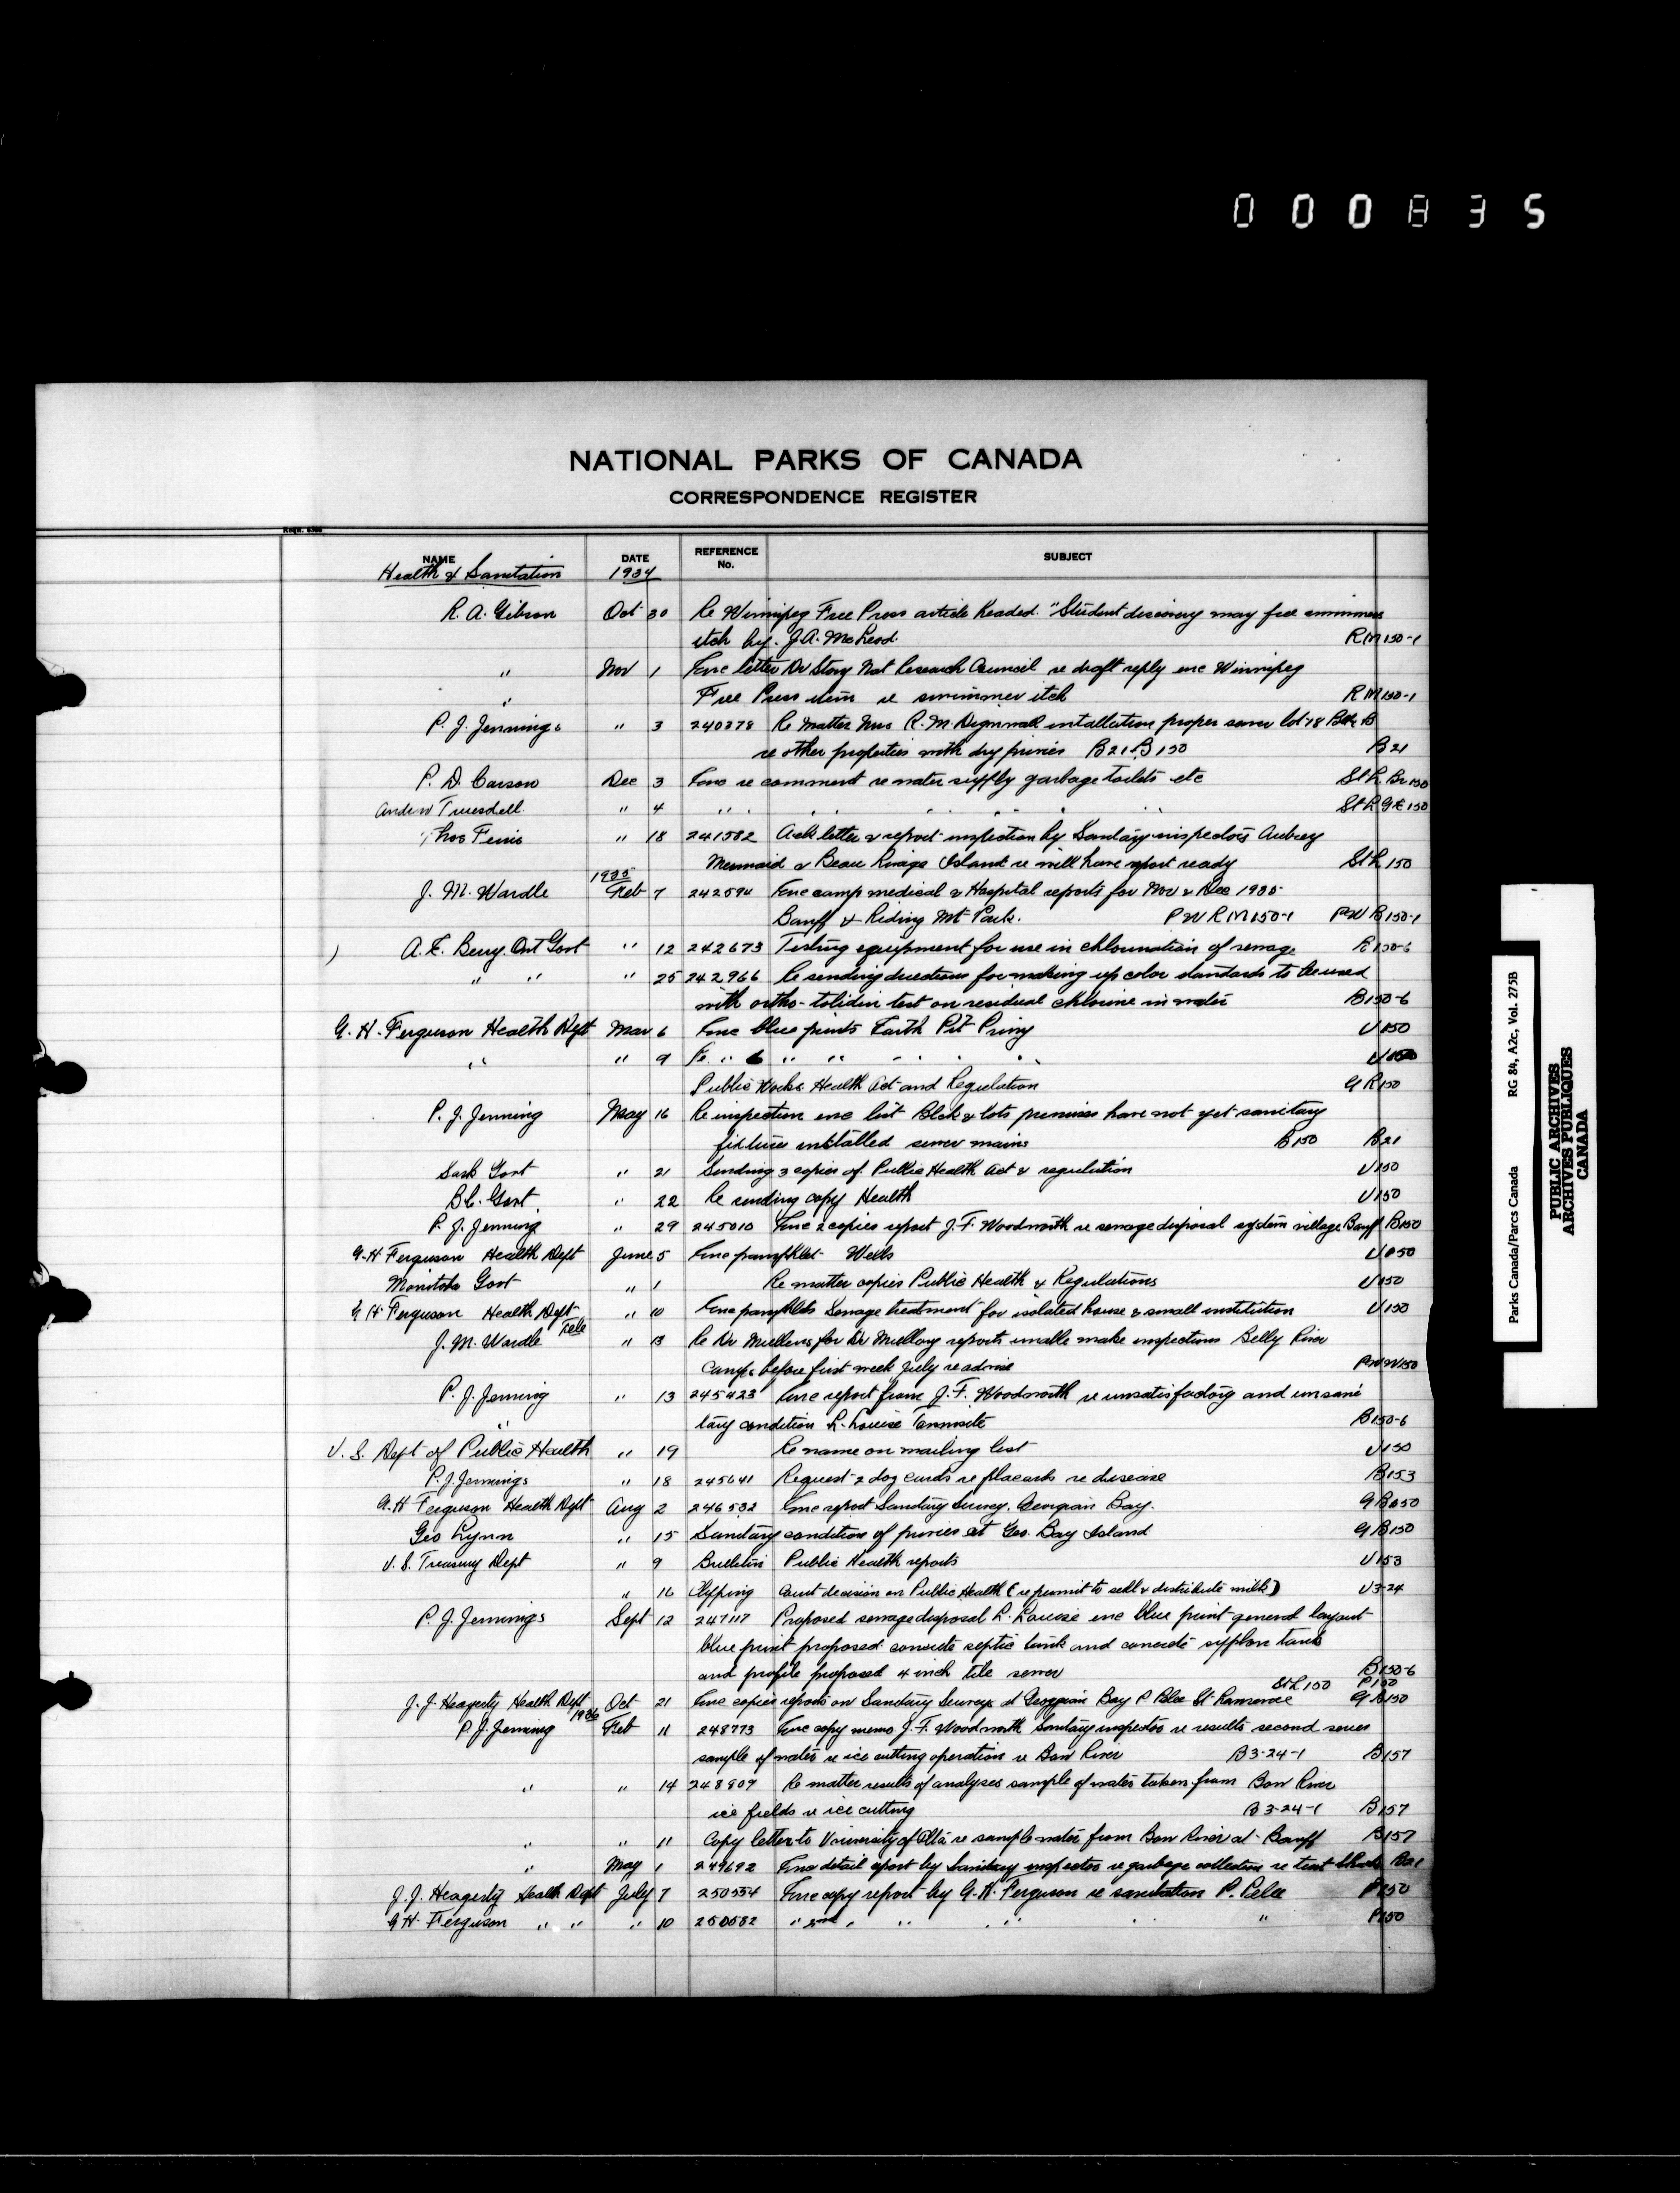 000835
NATIONAL PARKS OF CANADA
CORRESPONDENCE REGISTER
NAME DATE REFERENCE No. SUBJECT
Health & Sanitation 1934
R. A. Gibson Oct 30 Re Winnipeg Free Press article headed "Student discovery may free swimmers
itch by J.A. McLeod. RM150-1
" Nov 1 Enc letter Dr Story Nat Research Council re draft reply enc Winnipeg
" Free Press item re swimmer itch RM150-1
P. J. Jennings " 3 240378 Re matter Mrs R. M. installation proper sewer lot 18 Blk B
re other properties with dry privies B21 B150 B21
P. D. Carson Dec 3 Enc re comment re water supply garbage toilets etc St L. Br 150
Andrew Truesdell " 4 " " " " " " St L GE 150
Thos " 18 241582 Ack letter & report inspection by Sanitary inspectors Aubrey
Mermaid & Beau Rivage Island re will have report ready St L 150
1935
J. M. Wardle Feb 7 242594 Enc camp medical & Hospital reports for Nov & Dec 1935
Banff & Riding Mt Park. PW RM150-1 PW B150-1
A. E. Berry Ont Govt " 12 242673 Testing equipment for use in chlorination of sewage B150-6
" " " 25 242966 Re sending directions for making up color standards to be used
with ortho-tolidin test on residual chlorine in water B150-6
G. H. Ferguson Health Dept Mar 6 Enc blue prints Earth Pit Privy U150
" " 9 Re " 6 " " " " " U150
Public Works Health Act and Regulation G R150
P. J. Jenning May 16 Re inspection enc list Blck & lots premises have not yet sanitary
fixtures installed sewer mains B150 B21
Sask Govt " 21 Sending 3 copies of Public Health Act & regulation U150
B.C. Govt. " 22 Re sending copy Health U150
P. J. Jenning " 29 245010 Enc 2 copies report J. F. Woodworth re sewage disposal system village Banff B150
G. H Ferguson Health Dept June 5 Enc pamphlet Wells U150
Manitoba Govt " 1 Re matter copies Public Health & Regulations U150
G H Ferguson Health Dept " 10 Enc pamphlets Sewage treatment for isolated house & small institution U150
J. M. Wardle Tele " 13 Re Dr for Dr reports unable make inspections Belly River
Camps before first week July re advise PWW150
P. J. Jenning " 13 245423 Enc report from J. F. Woodworth re unsatisfactory and unsani
" tary condition L. Louise Townsite B150-6
U. S. Dept of Public Health " 19 Re name on mailing list U150
P. J. Jennings " 18 245641 Request 2 doz cards re placards re disease B153
G. H Ferguson Health Dept Aug 2 246532 Enc report Sanitary Survey. Georgian Bay. GB150
Geo Lynn " 15 Sanitary condition of privies at Geo. Bay Island GB150
U. S. Treasury Dept " 9 Bulletin Public Health reports U153
" 16 Clipping Court decision on Public Health (re permit to sell & distribute milk) U3-24
P. J. Jennings Sept 12 247117 Proposed sewage disposal L. Louise enc blue print general layout
blue print proposed concrete septic tank and concrete syphon tank
and profile proposed 4 inch tile sewer B150-6
St L 150 P150
J. J. Heagerty Health Dept Oct 21 Enc copies reports on Sanitary Surveys at Georgian Bay P Pelee St. Lawrence GB150
1936
P. J. Jenning Feb 11 248773 Enc copy memo J. F. Woodworth Sanitary inspector re results second series
sample of water re ice cutting operation re Bow River B3-24-1 B157
" " 14 248809 Re matter results of analyses sample of water taken from Bow River
ice fields re ice cutting B3-24-1 B157
" " 11 Copy letter to University of Alta re sample water from Bow River at Banff B157
" May 1 249692 Enc detail report by Sanitary inspector re garbage collection re
J. J. Heagerty Health Dept July 7 250534 Enc copy report by G. H. Ferguson re sanitation P. Pelee P150
G H. Ferguson " " " 10 250582 " 2nd " " " " " P150
Parks Canada/Parcs Canada RG 84, A2c, Vol. 275B
PUBLIC ARCHIVES
ARCHIVES PUBLIQUES
CANADA